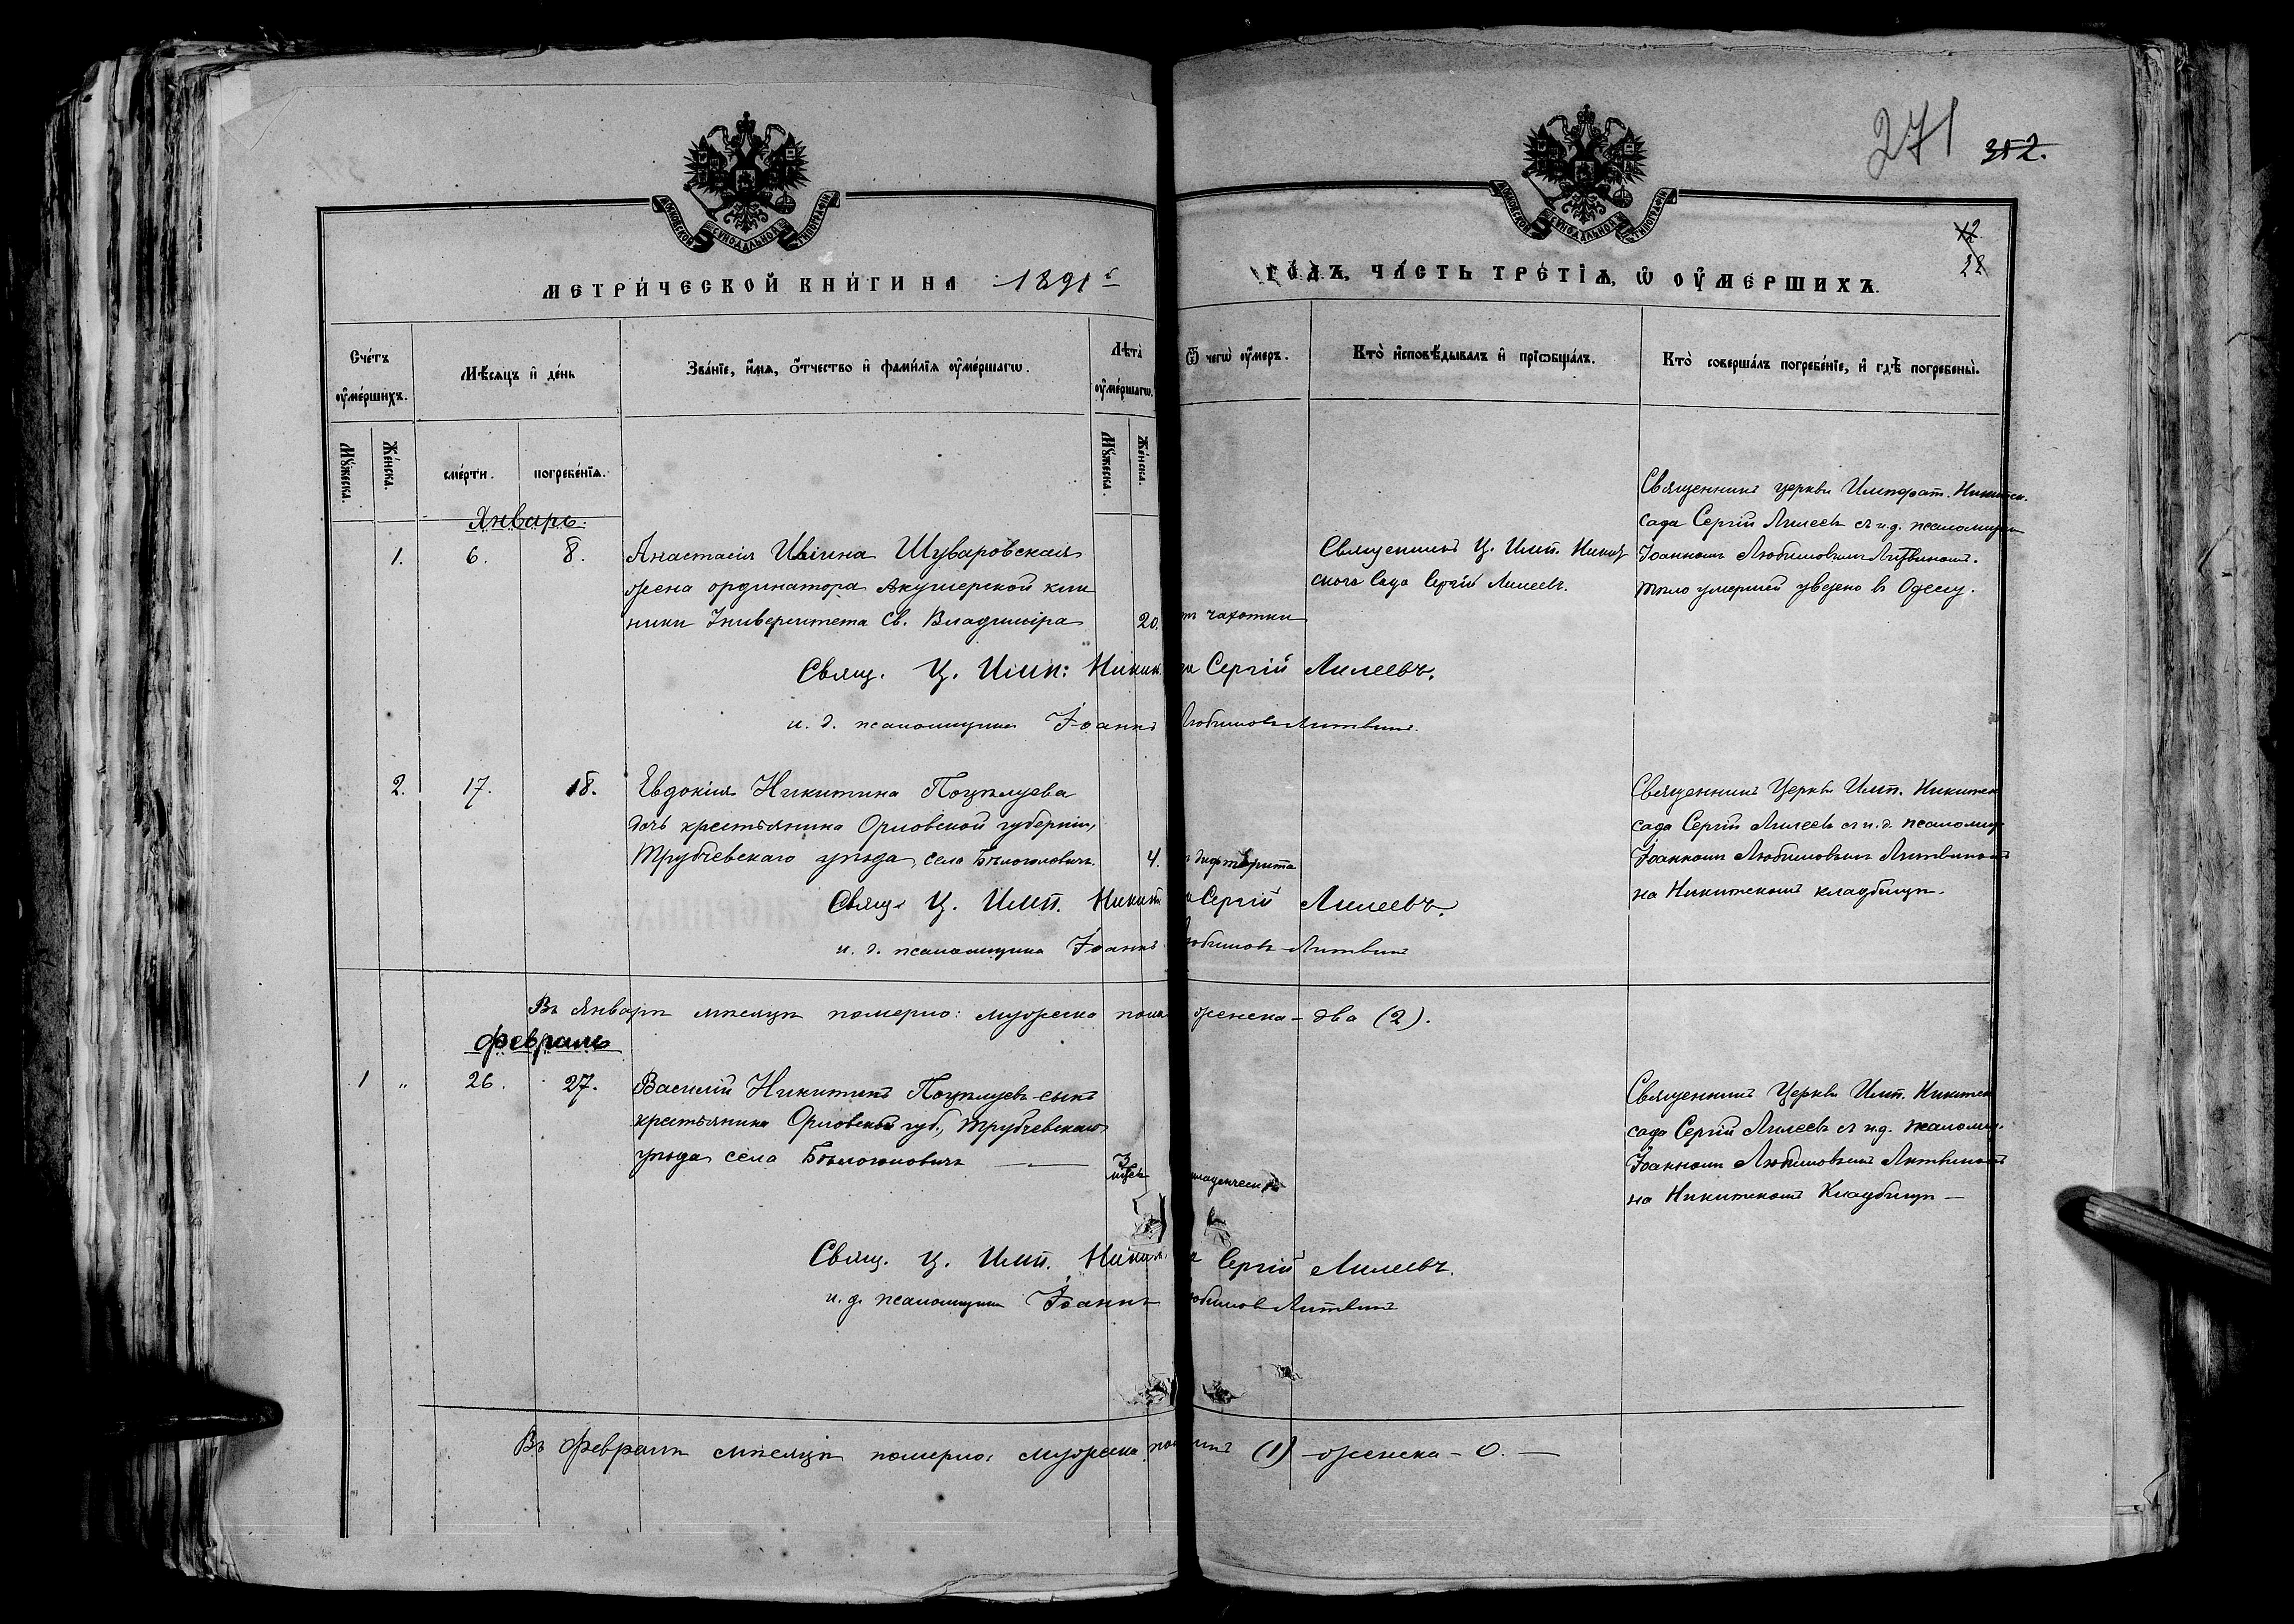 271 352.
12.
22
МОСКОВСКОЙ СѴНОДАЛЬНОЙ ТИПОГРАФІИ
МОСКОВСКОЙ СѴНОДАЛЬНОЙ ТИПОГРАФІИ
МЕТРИ́ЧЕСКОЙ КНИ́ГИ НА 1891 г
ГО́ДЪ, ЧА́СТЬ ТРЕ́ТІѦ, Ѡ҆ ОУ҆МЕ́РШИХЪ.
Сче́тъ
оу҆ме́ршихъ.
Мꙋ́жеска.
Же́нска.
Мѣ́сяцъ и҆ де́нь
сме́рти.
погребе́нїя.
Зва́нїе, и҆́мя, ѻ҆́тчество и҆ фами́лїя оу҆ме́ршагѡ.
Лѣ́та
оу҆ме́ршагѡ.
Мꙋ́жеска.
Же́нска.
Ѿ чегѡ̀ оу҆́меръ.
Кто̀ и҆сповѣ́дывалъ и҆ прїѡбща́лъ.
Кто̀ соверша́лъ погребе́нїе, и҆ гдѣ̀ погребены̀.
Январь.
1. 6. 8.
Анастасія Ивлина Шуваровская
жена ординатора Акушерской кли
ники Университета Св. Владиміра
20.
тъ чахотки
Священникъ Ц. Имп. Никит
скаго Сада Сергій Лилеевъ.
Священникъ церкви Императ. Никитск.
сада Сергій Лилеевъ съ и.д. псаломщи
Іоанномъ Любимовымъ Литвиномъ.
тѣло умершей увезено въ Одессу.
Свящ. Ц. Имп: Никит. да Сергій Лилеевъ.
и. д. псаломщика Іоаннъ Любимовъ Литвинъ.
2. 17. 18.
Евдокія Никитина Поцѣлуева
дочь крестьянина Орловской губерніи,
Трубчевскаго уѣзда, села Бѣлоголовичъ.
4.
дифтерита
Священникъ Церкви Имп. Никитск
сада Сергій Лилеевъ съ и.д. псаломщ
Іоанномъ Любимовымъ Литвиномъ
на Никитскомъ кладбищѣ.
Свящ. Ц. Имп. Никит а Сергій Лилеевъ.
и. д. псаломщика Іоаннъ юбимовъ Литвинъ
Въ Январѣ мѣсяцѣ померло: мужеска пола женска - два (2).
Февраль
1 „ 26. 27.
Василій Никитинъ Поцѣлуевъ сынъ
крестьянина Орловской губ., Трубчевскаго
уѣзда села Бѣлоголовичъ —
3
мѣс.
младенческ
Священникъ Церкви Имп. Никитск
сада Сергій Лилеевъ съ и.д. псаломщ.
Іоанномъ Любимовымъ Литвиномъ
на Никитскомъ Кладбищѣ —
Свящ. Ц. Имп. Никит. а Сергій Лилеевъ.
и. д. псаломщика Іоаннъ юбимовъ Литвинъ
Въ Февралѣ мѣсяцѣ померло: мужеска (1) женска - 0. —